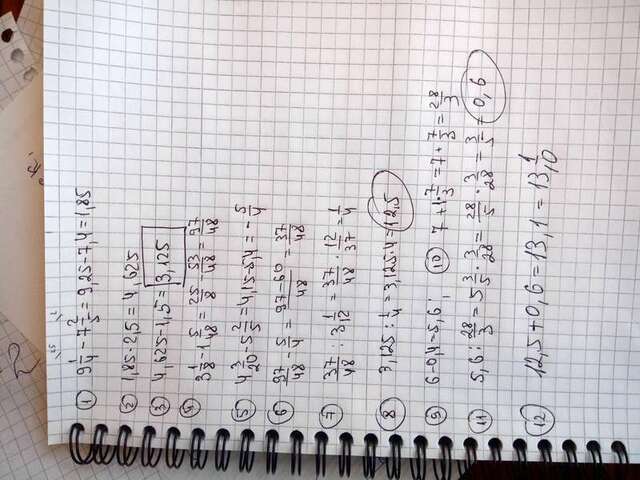 ① 9 1/4 - 7 2/5 = 9,25 - 7,4 = 1,85
② 1,85 · 2,5 = 4,625
③ 4,625 - 1,5 = 3,125
④ 3 1/8 - 1 5/48 = 25/8 - 53/48 = 97/48
⑤ 4 3/20 - 5 2/5 = 4,15 - 5,4 = - 5/4
⑥ 97/48 - 5/4 = 97-60/48 = 37/48
⑦ 37/48 : 3 1/12 = 37/48 · 12/37 = 1/4
⑧ 3,125 : 1/4 = 3,125 · 4 = 12,5
⑨ 6 - 0,4 = 5,6; ⑩ 7 + 1 · 7/3 = 7 + 7/3 = 28/3
⑪ 5,6 : 28/3 = 5 3/5 · 3/28 = 28/5 · 3/28 = 3/5 = 0,6
⑫ 12,5 + 0,6 = 13,1 = 13 1/10